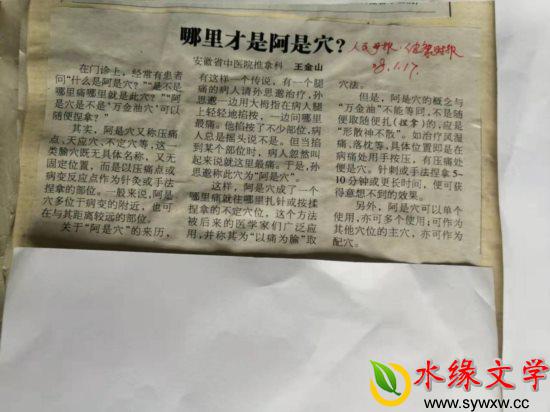 哪里才是阿是穴？
安徽省中医院推拿科　王金山
人民日报·健康时报
8.1.17.
在门诊上，经常有患者
问“什么是阿是穴？”“是不是
哪里痛哪里就是此穴？”“阿
是穴是不是‘万金油穴’可以
随便捏拿？”
其实，阿是穴又称压痛
点、天应穴、不定穴等，这一
类腧穴既无具体名称，又无
固定位置，而是以压痛点或
病变反应点作为针灸或手法
捏拿的部位。一般来说，阿是
穴多位于病变的附近，也可
在与其距离较远的部位。
关于“阿是穴”的来历，
有这样一个传说，有一个腿
痛的病人请孙思邈治疗，孙
思邈一边用大拇指在病人腿
上轻轻地掐按，一边问哪里
最痛。他掐按了不少部位，病
人总是摇头说不是。但当掐
到某个部位时，病人忽然叫
起来说就这里最痛。于是，孙
思邈称此穴为“阿是穴”。
这样，阿是穴成了一个
哪里痛就往哪里扎针或按揉
捏拿的不定穴位，这个方法
被后来的医学家们广泛应
用，并称其为“以痛为腧”取
穴法。
但是，阿是穴的概念与
“万金油”不能等同，不是随
便取随便扎（捏拿）的，应是
“形散神不散”。如治疗风湿
痛、落枕等，具体位置即是在
病痛处用手按压，有压痛处
便是穴。针刺或手法捏拿5-
10分钟或更长时间，便可获
得意想不到的效果。
另外，阿是穴可以单个
使用，亦可多个使用；可作为
其他穴位的主穴，亦可作为
配穴。
水缘文学
www.sywxw.cc